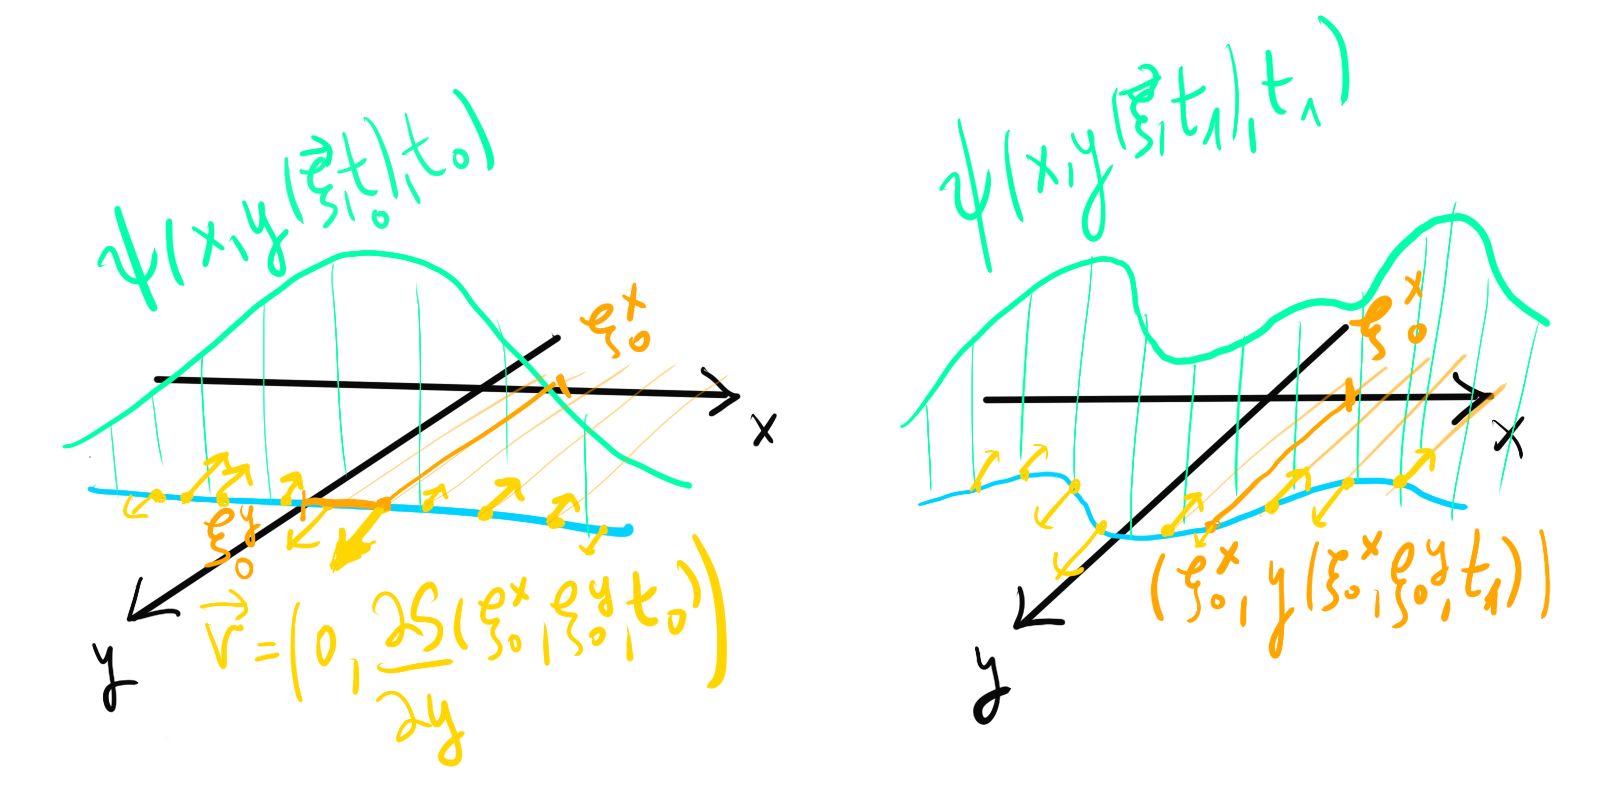 ψ(x,y(ξ⃗,t₀),t₀)
ξ₀ˣ
x
ξ₀ʸ
v⃗=(0,∂S(ξ₀ˣ,ξ₀ʸ,t₀)/∂y)
y
ψ(x,y(ξ⃗,t₁),t₁)
ξ₀ˣ
x
(ξ₀ˣ,y(ξ₀ˣ,ξ₀ʸ,t₁))
y